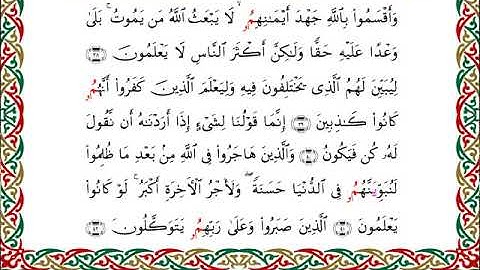 وَأَقْسَمُوا۟ بِٱللَّهِ جَهْدَ أَيْمَـٰنِهِمُۥ لَا يَبْعَثُ ٱللَّهُ مَن يَمُوتُ ۚ بَلَىٰ
وَعْدًا عَلَيْهِ حَقًّا وَلَـٰكِنَّ أَكْثَرَ ٱلنَّاسِ لَا يَعْلَمُونَ ﴿٣٨﴾
لِيُبَيِّنَ لَهُمُ ٱلَّذِى يَخْتَلِفُونَ فِيهِ وَلِيَعْلَمَ ٱلَّذِينَ كَفَرُوٓا۟ أَنَّهُمُۥ
كَانُوا۟ كَـٰذِبِينَ ﴿٣٩﴾ إِنَّمَا قَوْلُنَا لِشَىْءٍ إِذَآ أَرَدْنَـٰهُ أَن نَّقُولَ
لَهُۥ كُن فَيَكُونُ ﴿٤٠﴾ وَٱلَّذِينَ هَاجَرُوا۟ فِى ٱللَّهِ مِنۢ بَعْدِ مَا ظُلِمُوا۟
لَنُبَوِّئَنَّهُمُۥ فِى ٱلدُّنْيَا حَسَنَةً ۖ وَلَأَجْرُ ٱلْـَٔاخِرَةِ أَكْبَرُ ۚ لَوْ كَانُوا۟
يَعْلَمُونَ ﴿٤١﴾ ٱلَّذِينَ صَبَرُوا۟ وَعَلَىٰ رَبِّهِمُۥ يَتَوَكَّلُونَ ﴿٤٢﴾